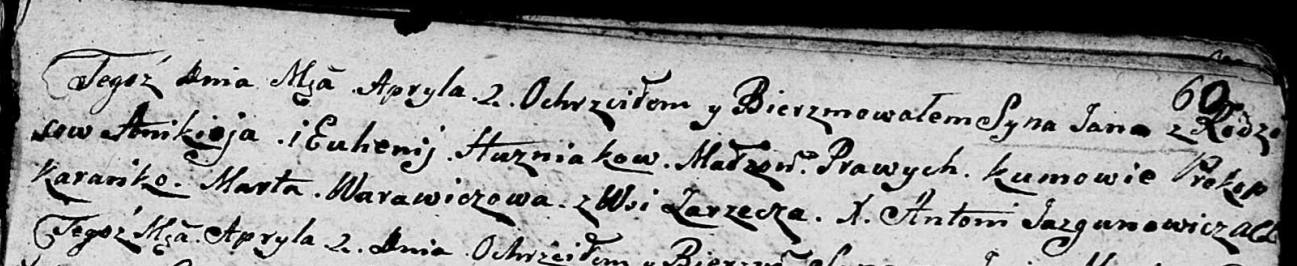 60
Tegoż dnia Mcã Apryla 2. Ochrzciłem y Bierzmowałem Syna Jana z Rodzo
sow Anikieja i Euhenij Huzniakow. Małżoñ. Prawych. kumowie Prokop
Karańko. Marta. Warawiczowa. z Wsi Zarzecza. X. Antoni Jazgunowicz
Tegoż Mcã. Apryla 2. dnia Ochrzciłem y